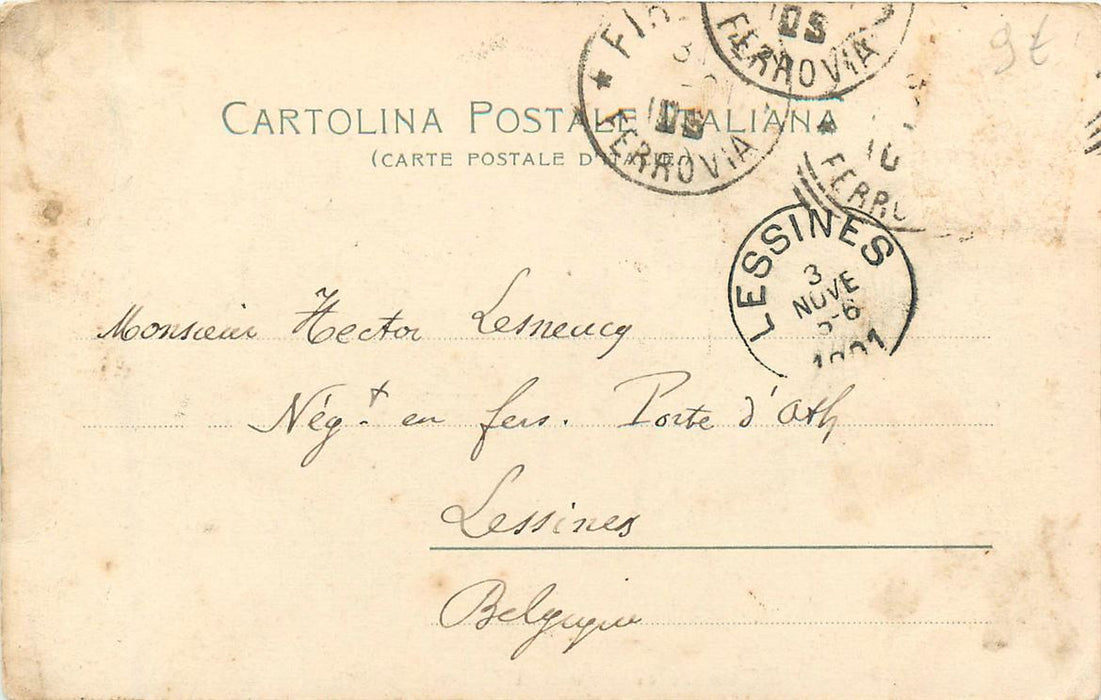 9 t
10S
FERROVIA
FI
3
10S
FERROVIA
10
FERRO
CARTOLINA POSTALE ITALIANA
(CARTE POSTALE D'ITALIE)
LESSINES
3
NOVE
5-6
1901
Monsieur Hector Lesneucq
Nég.t en fers. Porte d'Ath
Lessines
Belgique